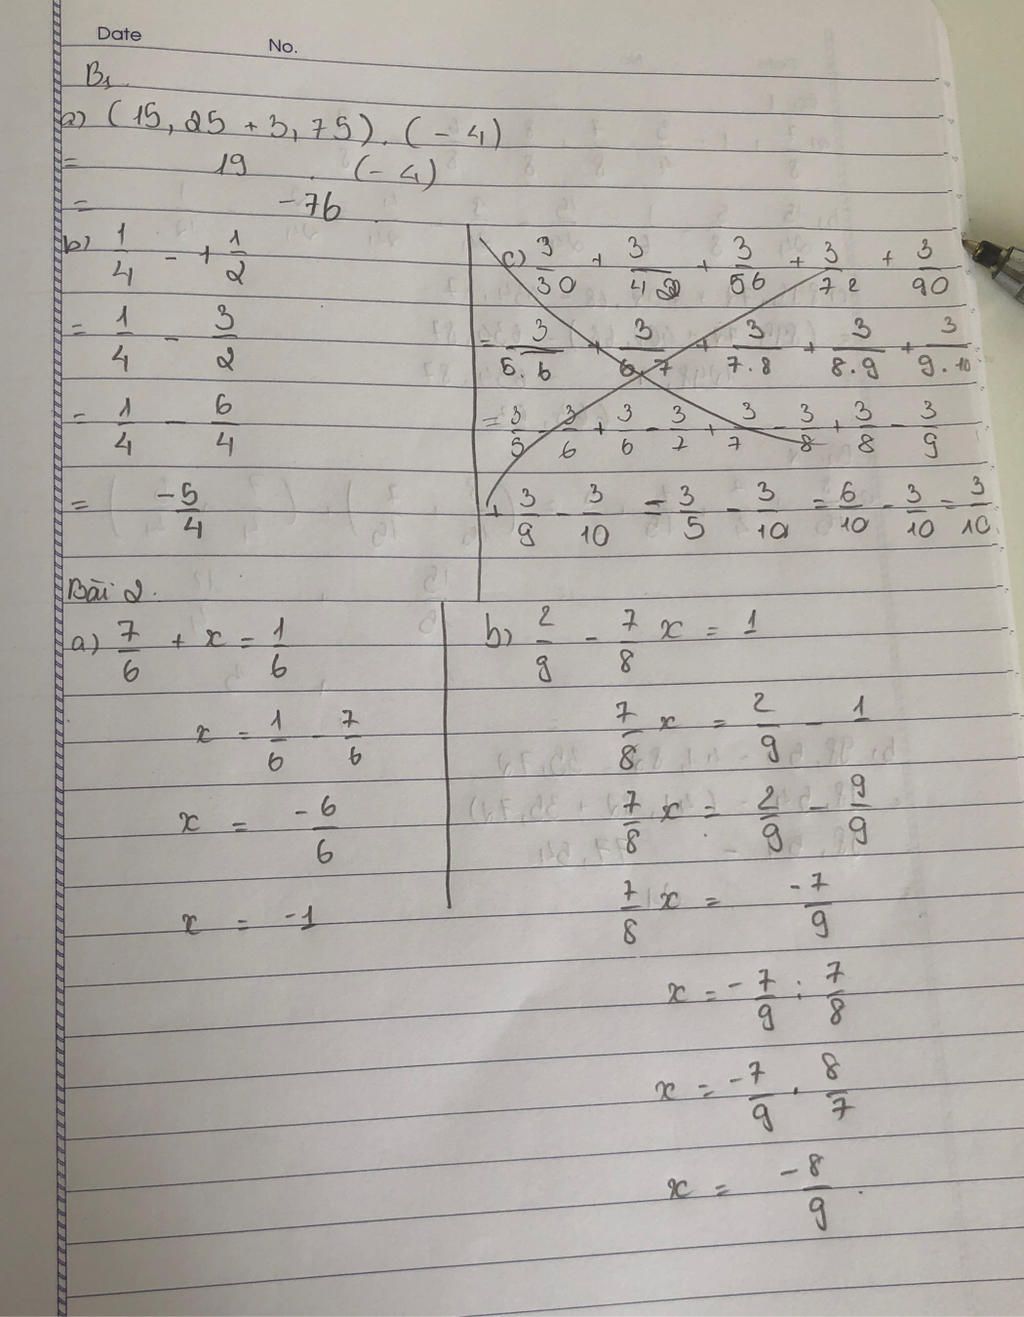 Date No.
B1
a) (15,25 + 3,75) . (-4)
= 19 . (-4)
= -76
b) 1/4 - +1/2
= 1/4 - 3/2
= 1/4 - 6/4
= -5/4
c) 3/30 + 3/42 + 3/56 + 3/72 + 3/90
= 3/5.6 + 3/6.7 + 3/7.8 + 3/8.9 + 3/9.10
= 3/5 - 3/6 + 3/6 - 3/7 + 3/7 - 3/8 + 3/8 - 3/9
+ 3/9 - 3/10 = 3/5 - 3/10 = 6/10 - 3/10 = 3/10
Bài 2.
a) 7/6 + x = 1/6
x = 1/6 - 7/6
x = -6/6
x = -1
b) 2/9 - 7/8 x = 1
7/8 x = 2/9 - 1
7/8 x = 2/9 - 9/9
7/8 x = -7/9
x = -7/9 : 7/8
x = -7/9 . 8/7
x = -8/9.